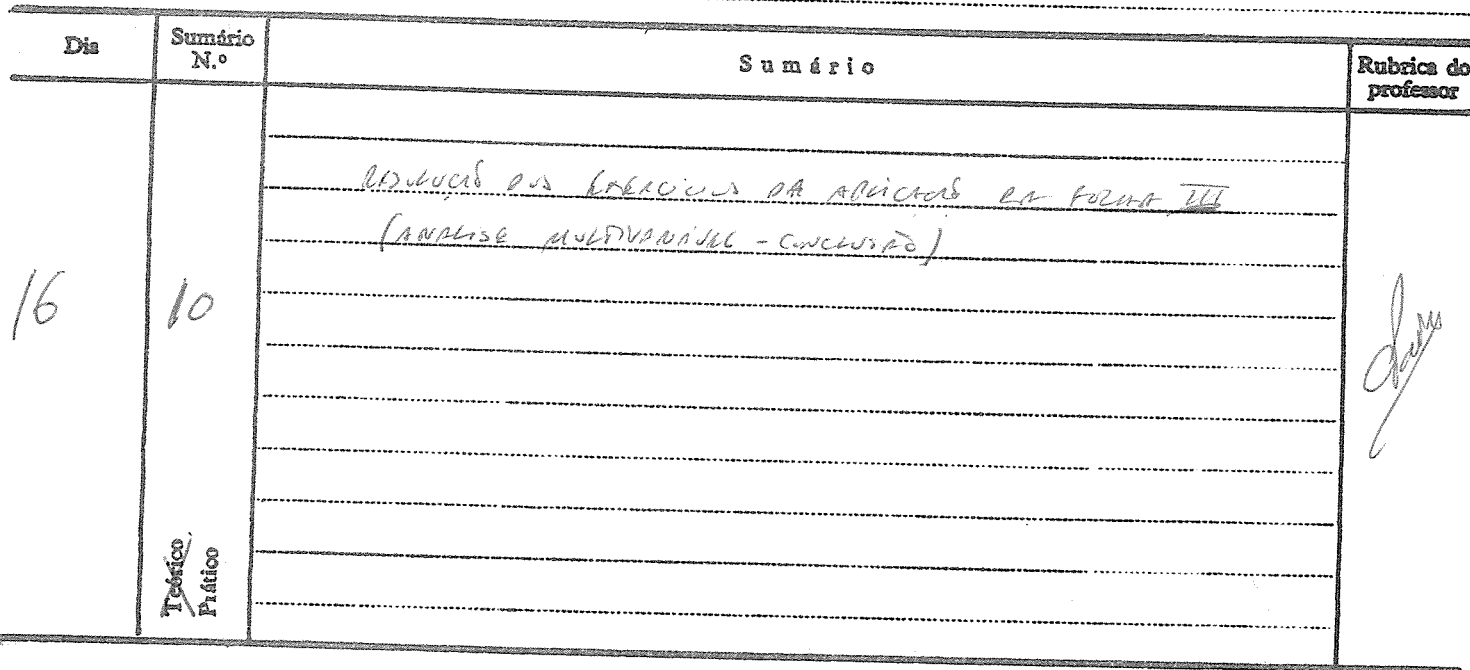 Dia
Sumário N.º
Sumário
Rubrica do professor
16
10
Teórico
Prático
RESOLUÇÃO DOS EXERCÍCIOS DA APLICAÇÃO DA FORMA III
(ANÁLISE MULTIVARIÁVEL - CONCLUSÃO)